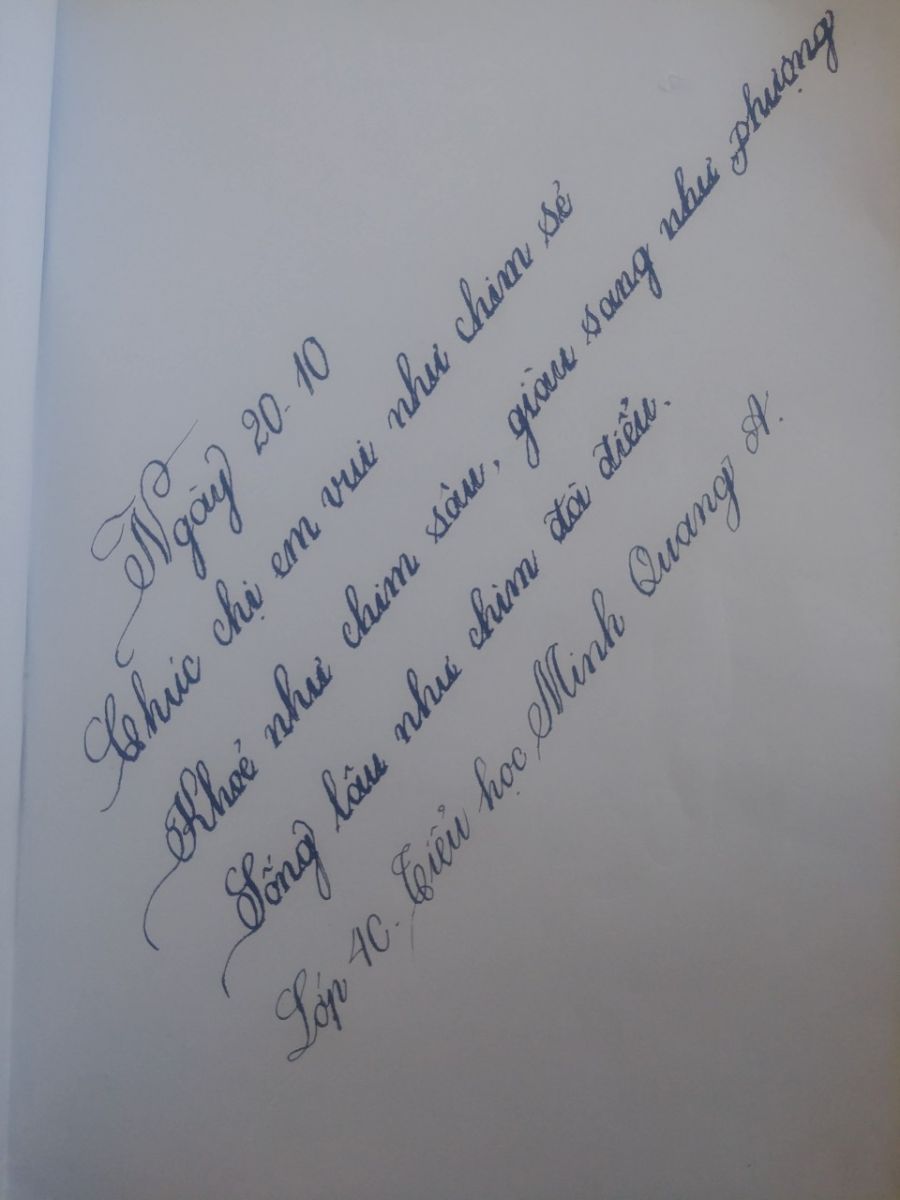 Ngày 20-10
Chúc chị em vui như chim sẻ
Khoẻ như chim sâu, giàu sang như phượng
Sống lâu như chim đà điểu.
Lớp 4C. Tiểu học Minh Quang A.